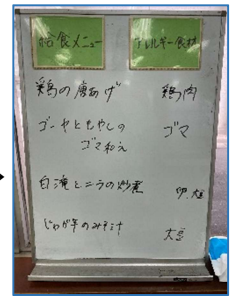 給食メニュー
アレルギー食材
鶏の唐あげ
鶏肉
ゴーヤともやしの
ゴマ和え
ゴマ
白滝とニラの炒煮
卵
じゃが芋のみそ汁
大豆